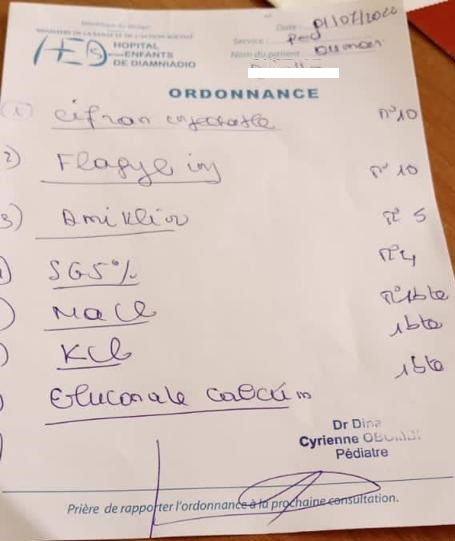 République du Sénégal
MINISTERE DE LA SANTE ET DE L'ACTION SOCIALE
HOPITAL
ENFANTS
DE DIAMNIADIO
Date : 01/07/2020
Service : Ped
Nom du patient
ORDONNANCE
1) Cifran injectable n°10
2) Flagyl inj n°10
3) Amiklin n° 5
SG5% n°4
NaCl n°1bte
KCl 1bte
Gluconate calcium 1bte
Dr Dina
Cyrienne
Pédiatre
Prière de rapporter l'ordonnance à la prochaine consultation.